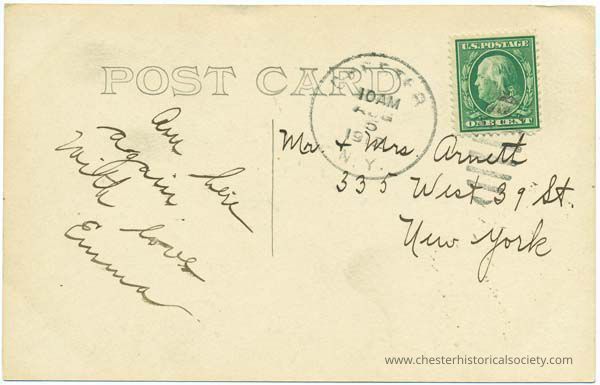 POST CARD
Am here
again.
With loves
Emma
CHESTER
10 AM
AUG
5
N.Y.
U.S. POSTAGE
ONE CENT
Mr. & Mrs. Arnett
335 West 39 St.
New York
www.chesterhistoricalsociety.com